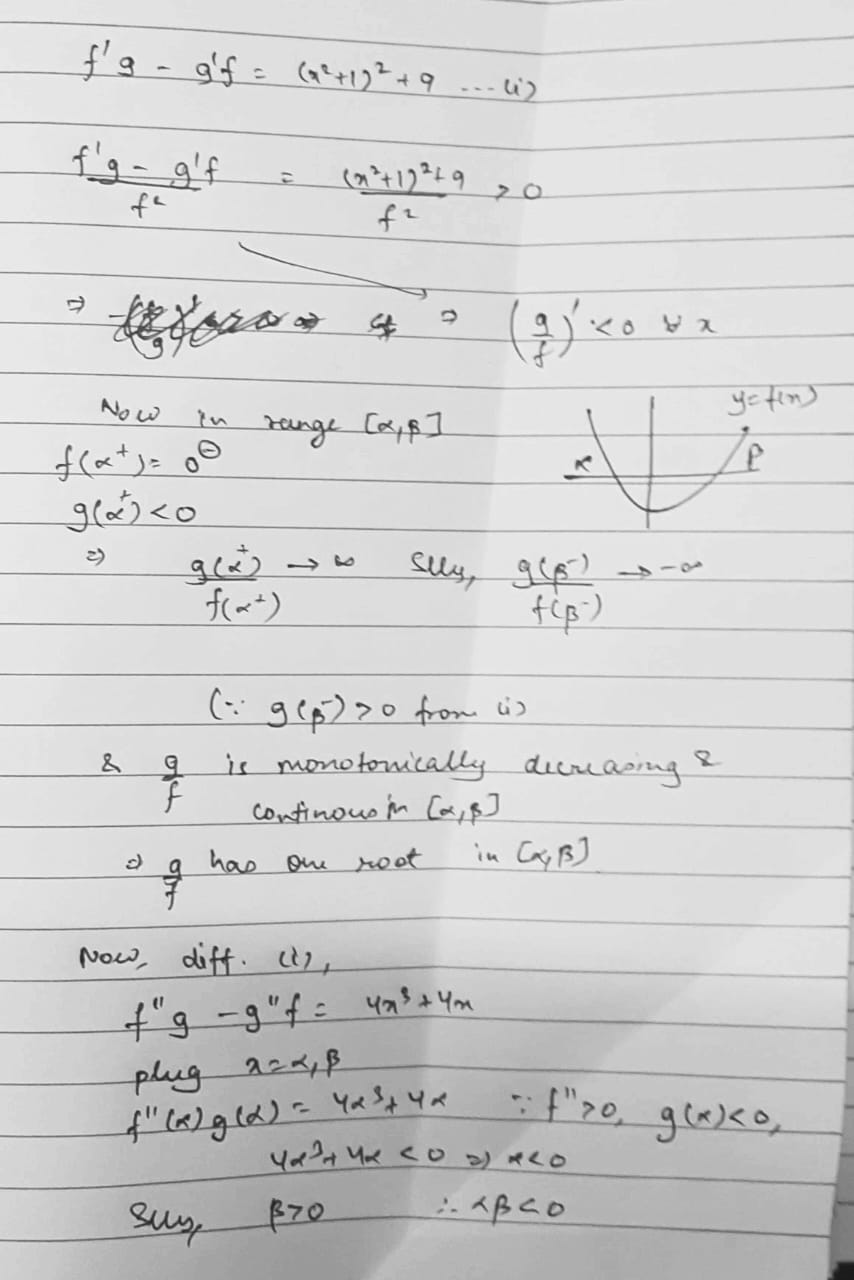 f'g - g'f = (x²+1)² + 9 ... (i)
(f'g - g'f)/f² = ((x²+1)²+9)/f² > 0
⇒ ⇒ (g/f)' < 0 ∀ x
Now in range [α,β]
y=f(x)
α β
f(α⁺) = 0⊖
g(α⁺) < 0
⇒ g(α⁺)/f(α⁺) → ∞ Slly, g(β⁻)/f(β⁻) → -∞
(∵ g(β⁻) > 0 from (i)
& g/f is monotonically decreasing &
continous in [α,β]
⇒ g/f has one root in [α,β]
Now, diff. (i),
f''g - g''f = 4x³ + 4x
plug x = α, β
f''(α) g(α) = 4α³ + 4α ∵ f'' > 0, g(α) < 0,
4α³ + 4α < 0 ⇒ α < 0
Slly, β > 0 ∴ αβ < 0